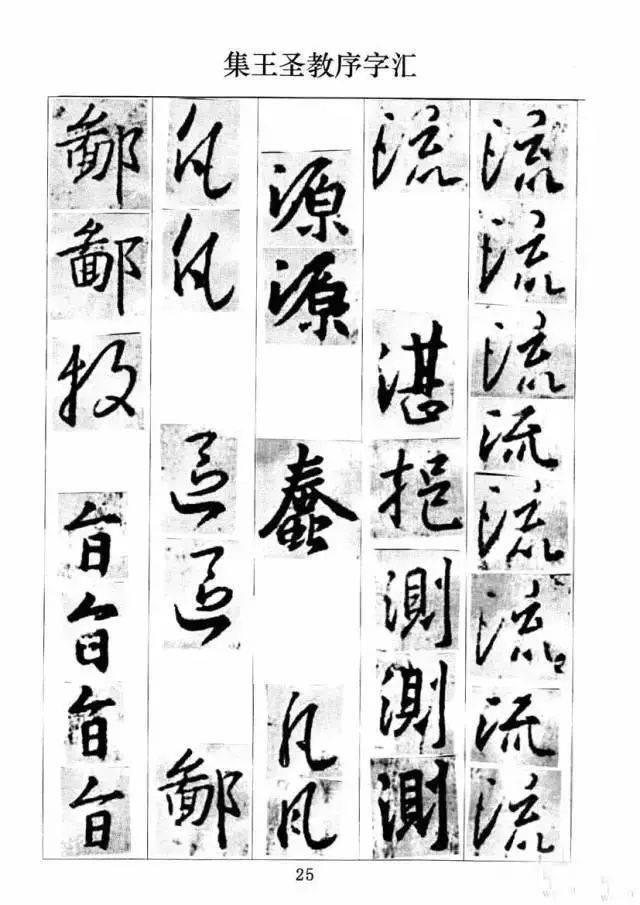 集王圣教序字汇
流流流流流流流流
流湛挹測測測
源源蠢凡凡
凡凡區區鄙
鄙鄙投旨旨旨旨
25